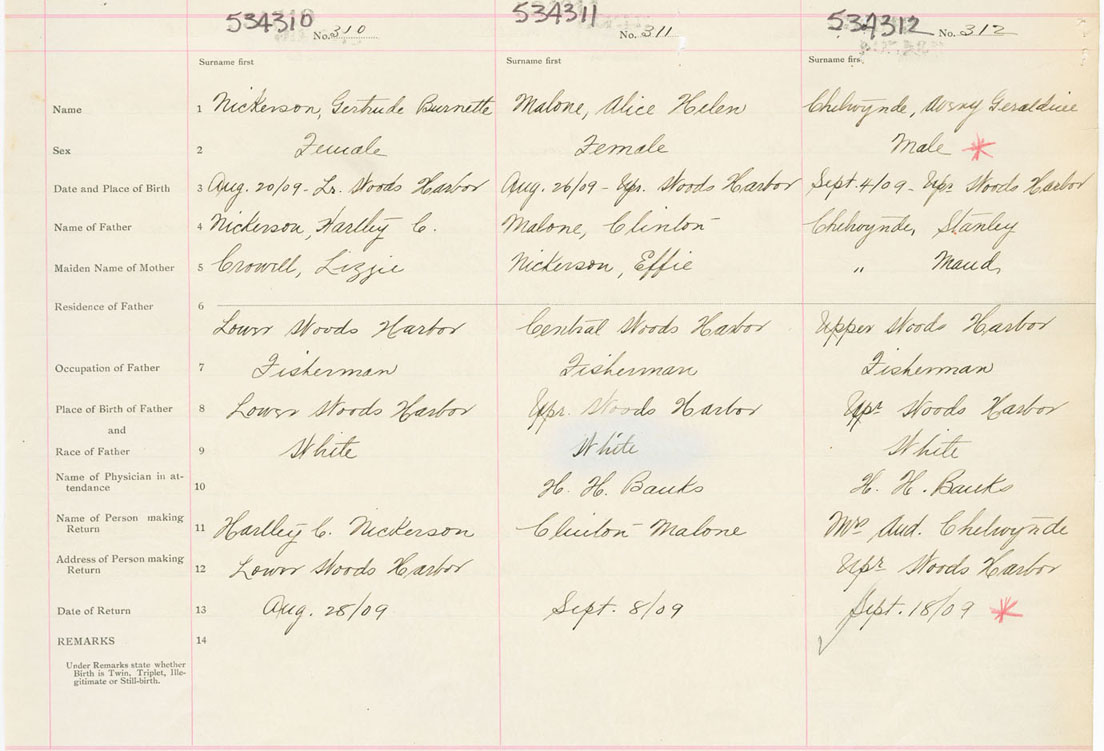 534310 No. 310 534311 No. 311 534312 No. 312
Surname first Surname first Surname first
Name 1 Nickerson, Gertrude Burnette Malone, Alice Helen Chelwynde, Geraldine
Sex 2 Female Female Male *
Date and Place of Birth 3 Aug. 20/09 - Lr. Woods Harbor Aug. 26/09 - Upr. Woods Harbor Sept. 4/09 - Upr Woods Harbor
Name of Father 4 Nickerson, Hartley C. Malone, Clinton Chelwynde, Stanley
Maiden Name of Mother 5 Crowell, Lizzie Nickerson, Effie " Maud
Residence of Father 6
Lower Woods Harbor Central Woods Harbor Upper Woods Harbor
Occupation of Father 7 Fisherman Fisherman Fisherman
Place of Birth of Father 8 Lower Woods Harbor Upr. Woods Harbor Upr Woods Harbor
and
Race of Father 9 White White White
Name of Physician in at-
tendance 10 H. H. Banks H. H. Banks
Name of Person making
Return 11 Hartley C. Nickerson Clinton Malone Mrs Aud. Chelwynde
Address of Person making
Return 12 Lower Woods Harbor Upr Woods Harbor
Date of Return 13 Aug. 28/09 Sept. 8/09 Sept. 18/09 *
REMARKS 14
Under Remarks state whether
Birth is Twin, Triplet, Ille-
gitimate or Still-birth.